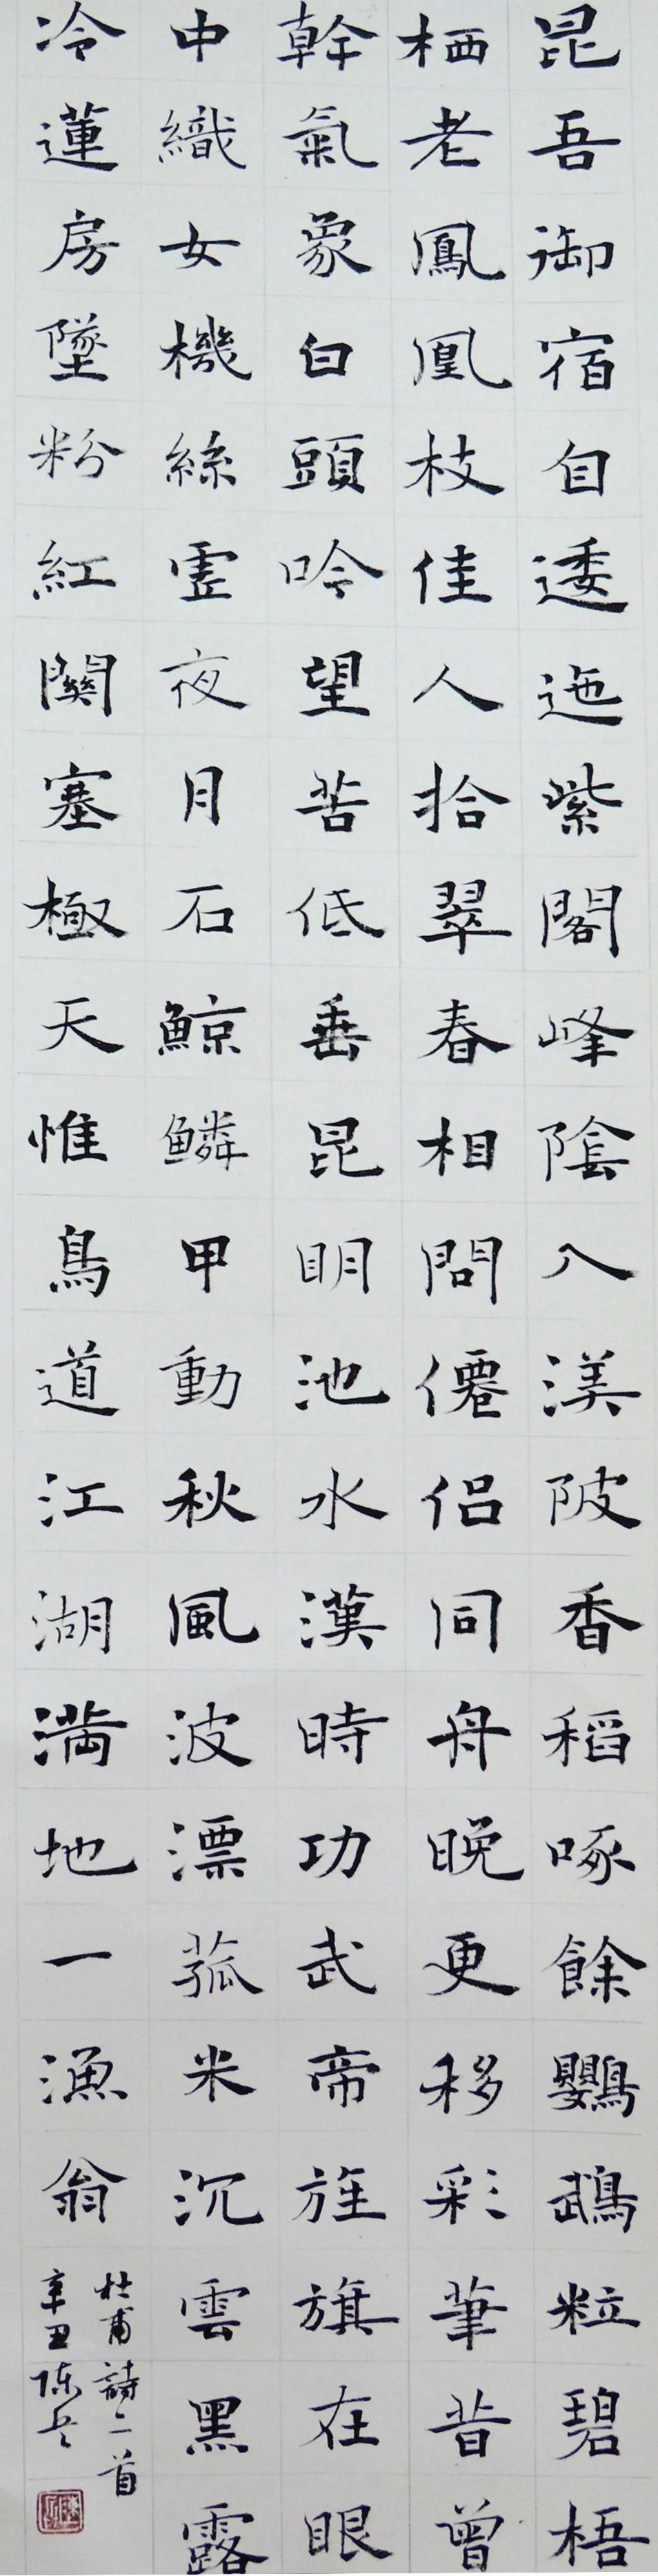 昆吾御宿自逶迤紫閣峰陰入渼陂香稻啄餘鸚鵡粒碧梧
栖老鳳凰枝佳人拾翠春相問僊侶同舟晚更移彩筆昔曾
幹氣象白頭吟望苦低垂昆明池水漢時功武帝旌旗在眼
中織女機絲虛夜月石鯨鱗甲動秋風波漂菰米沉雲黑露
冷蓮房墜粉紅關塞極天惟鳥道江湖滿地一漁翁
杜甫詩二首
辛丑陈兵